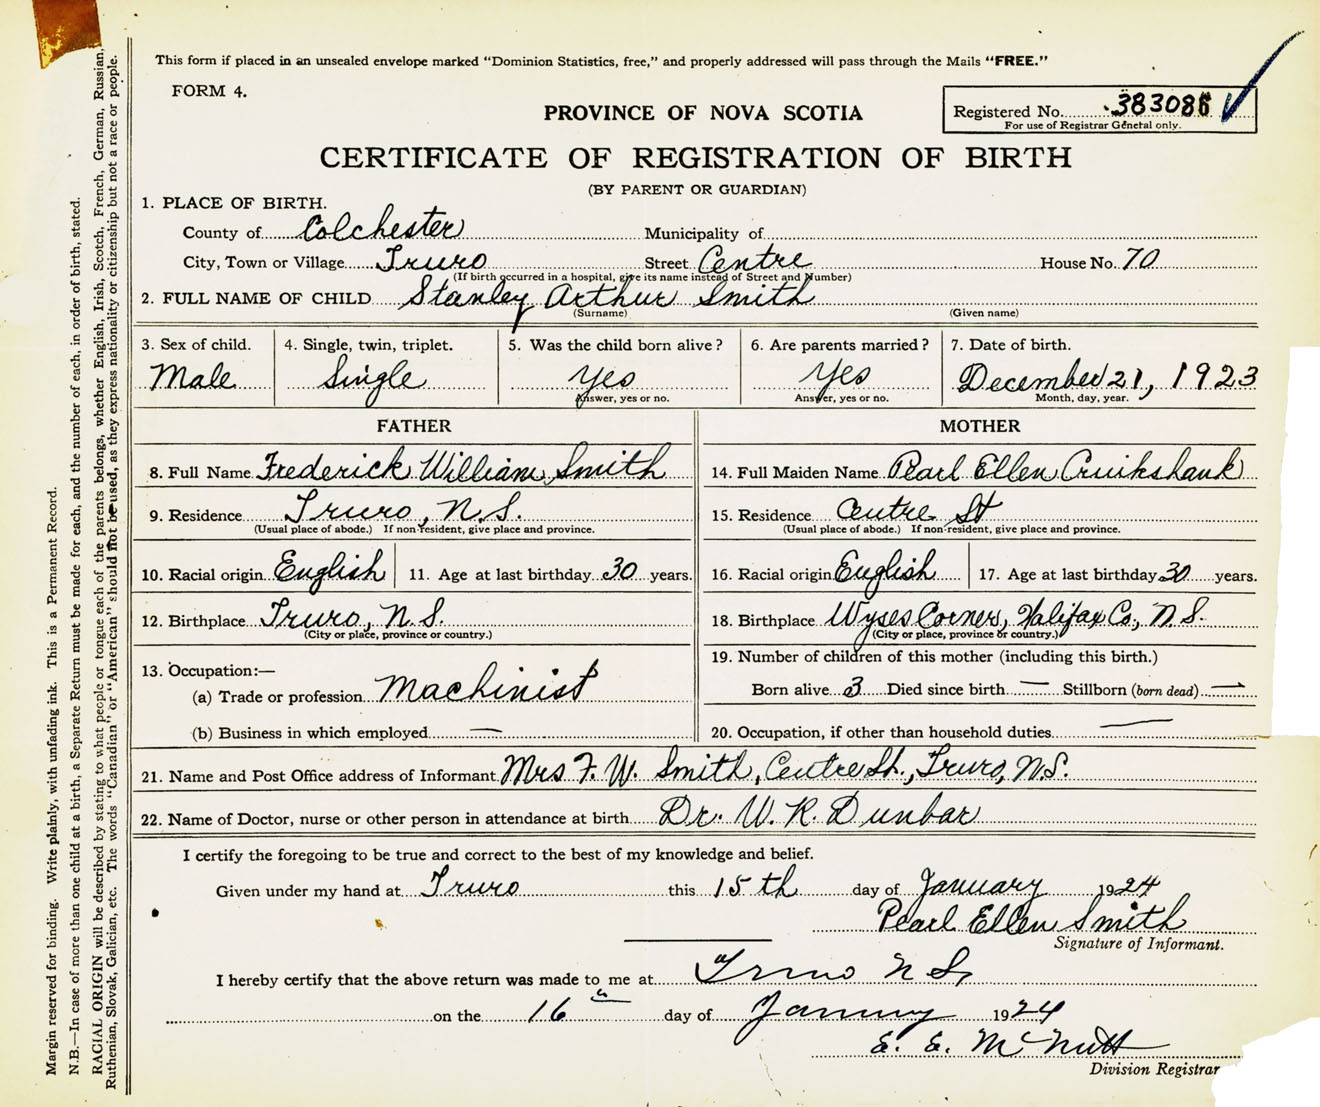 This form if placed in an unsealed envelope marked "Dominion Statistics, free," and properly addressed will pass through the Mails "FREE."
FORM 4.
PROVINCE OF NOVA SCOTIA
Registered No. 383086
For use of Registrar General only.
CERTIFICATE OF REGISTRATION OF BIRTH
(BY PARENT OR GUARDIAN)
1. PLACE OF BIRTH.
County of Colchester Municipality of
City, Town or Village Truro Street Centre House No. 70
(If birth occurred in a hospital, give its name instead of Street and Number)
2. FULL NAME OF CHILD Stanley Arthur Smith
(Surname) (Given name)
3. Sex of child. 4. Single, twin, triplet. 5. Was the child born alive? 6. Are parents married? 7. Date of birth.
Male Single Yes Yes December 21, 1923
Answer, yes or no. Answer, yes or no. Month, day, year.
FATHER MOTHER
8. Full Name Frederick William Smith 14. Full Maiden Name Pearl Ellen Cruikshank
9. Residence Truro, N.S. 15. Residence Centre St
(Usual place of abode.) If non-resident, give place and province. (Usual place of abode.) If non-resident, give place and province.
10. Racial origin English 11. Age at last birthday 30 years. 16. Racial origin English 17. Age at last birthday 30 years.
12. Birthplace Truro, N.S. 18. Birthplace Wyses Corner, Halifax Co., N.S.
(City or place, province or country.) (City or place, province or country.)
13. Occupation:— 19. Number of children of this mother (including this birth.)
(a) Trade or profession Machinist Born alive 3 Died since birth — Stillborn (born dead) —
(b) Business in which employed — 20. Occupation, if other than household duties —
21. Name and Post Office address of Informant Mrs F. W. Smith, Centre St., Truro, N.S.
22. Name of Doctor, nurse or other person in attendance at birth Dr. W. R. Dunbar
I certify the foregoing to be true and correct to the best of my knowledge and belief.
Given under my hand at Truro this 15th day of January 1924
Pearl Ellen Smith
Signature of Informant.
I hereby certify that the above return was made to me at Truro N S,
on the 16th day of January 1924
E. E. McNutt
Division Registrar
Margin reserved for binding. Write plainly, with unfading ink. This is a Permanent Record.
N.B.—In case of more than one child at a birth, a Separate Return must be made for each, and the number of each, in order of birth, stated.
RACIAL ORIGIN will be described by stating to what people or tongue each of the parents belongs, whether English, Irish, Scotch, French, German, Russian,
Ruthenian, Slovak, Galician, etc. The words "Canadian" or "American" should not be used, as they express nationality or citizenship but not a race or people.